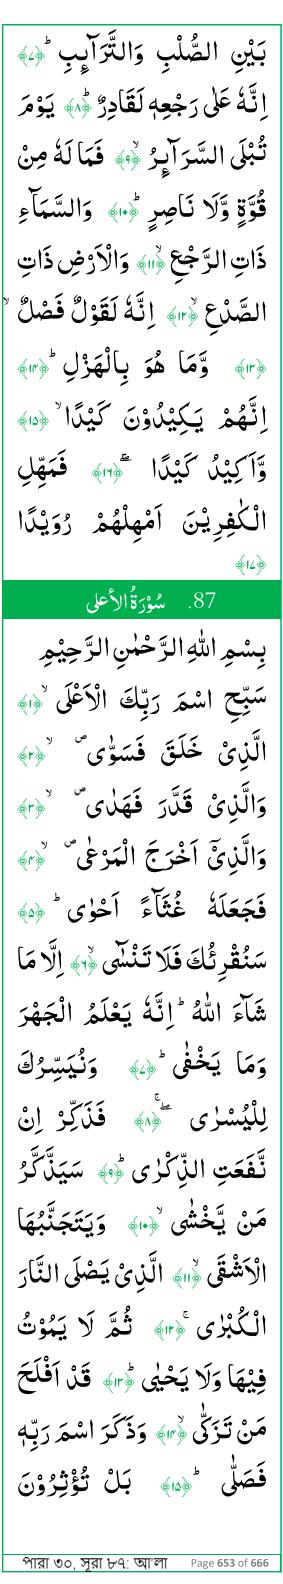 بَيْنِ الصُّلْبِ وَالتَّرَآئِبِ ؕ ﴿۷﴾
اِنَّهٗ عَلٰى رَجْعِهٖ لَقَادِرٌ ؕ ﴿۸﴾ يَوْمَ
تُبْلَى السَّرَآئِرُ ۙ ﴿۹﴾ فَمَا لَهٗ مِنْ
قُوَّةٍ وَّلَا نَاصِرٍ ؕ ﴿۱۰﴾ وَالسَّمَآءِ
ذَاتِ الرَّجْعِ ۙ ﴿۱۱﴾ وَالْاَرْضِ ذَاتِ
الصَّدْعِ ۙ ﴿۱۲﴾ اِنَّهٗ لَقَوْلٌ فَصْلٌ ۙ
﴿۱۳﴾ وَّمَا هُوَ بِالْهَزْلِ ؕ ﴿۱۴﴾
اِنَّهُمْ يَكِيْدُوْنَ كَيْدًا ۙ ﴿۱۵﴾
وَّاَكِيْدُ كَيْدًا ۚۖ ﴿۱۶﴾ فَمَهِّلِ
الْكٰفِرِيْنَ اَمْهِلْهُمْ رُوَيْدًا
﴿۱۷﴾
87. سُوْرَةُ الأعلى
بِسْمِ اللهِ الرَّحْمٰنِ الرَّحِيْمِ
سَبِّحِ اسْمَ رَبِّكَ الْاَعْلَى ۙ ﴿۱﴾
الَّذِىْ خَلَقَ فَسَوّٰى ۪ۙ ﴿۲﴾
وَالَّذِىْ قَدَّرَ فَهَدٰى ۪ۙ ﴿۳﴾
وَالَّذِىْٓ اَخْرَجَ الْمَرْعٰى ۪ۙ ﴿۴﴾
فَجَعَلَهٗ غُثَآءً اَحْوٰى ؕ ﴿۵﴾
سَنُقْرِئُكَ فَلَا تَنْسٰٓى ۙ ﴿۶﴾ اِلَّا مَا
شَآءَ اللهُ ؕ اِنَّهٗ يَعْلَمُ الْجَهْرَ
وَمَا يَخْفٰى ؕ ﴿۷﴾ وَنُيَسِّرُكَ
لِلْيُسْرٰى ۚۖ ﴿۸﴾ فَذَكِّرْ اِنْ
نَّفَعَتِ الذِّكْرٰى ؕ ﴿۹﴾ سَيَذَّكَّرُ
مَنْ يَّخْشٰى ۙ ﴿۱۰﴾ وَيَتَجَنَّبُهَا
الْاَشْقَى ۙ ﴿۱۱﴾ الَّذِىْ يَصْلَى النَّارَ
الْكُبْرٰى ۚ ﴿۱۲﴾ ثُمَّ لَا يَمُوْتُ
فِيْهَا وَلَا يَحْيٰى ؕ ﴿۱۳﴾ قَدْ اَفْلَحَ
مَنْ تَزَكّٰى ۙ ﴿۱۴﴾ وَذَكَرَ اسْمَ رَبِّهٖ
فَصَلّٰى ؕ ﴿۱۵﴾ بَلْ تُؤْثِرُوْنَ
পারা ৩০, সূরা ৮৭: আ'লা Page 653 of 666